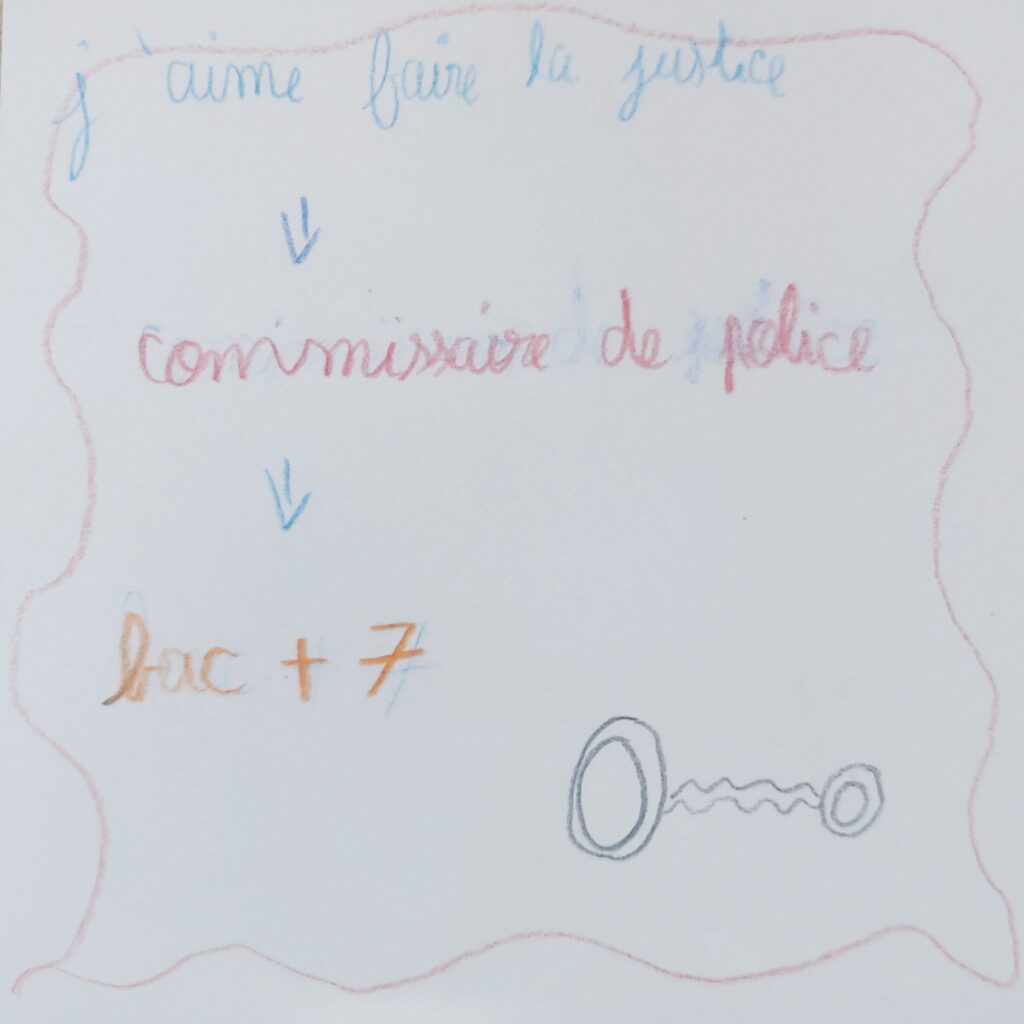 j'aime faire la justice
commissaire de police
bac + 7